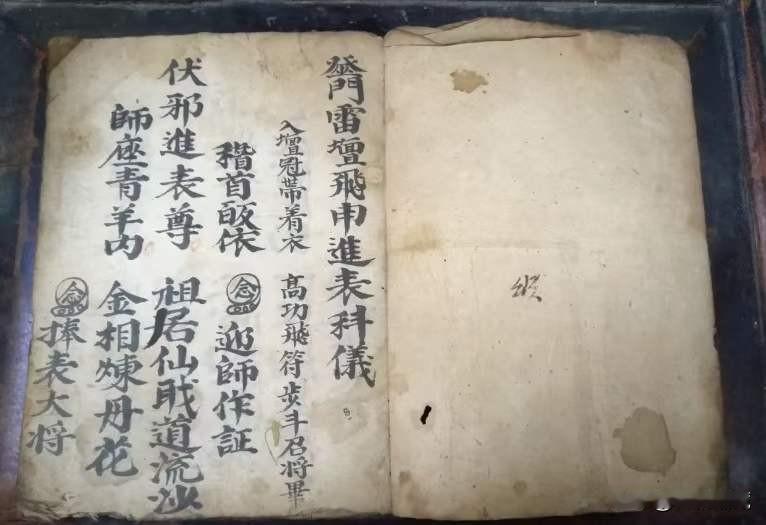 發門雷壇飛申進表科儀
入壇冠帶着衣 高功飛符步斗召将畢
稽首皈依 念 迎師作証
伏邪進表尊 祖居仙道流沙
師座青羊内 金相煉丹花
念 捧表大将